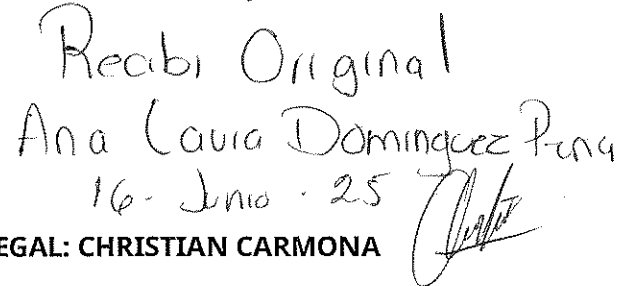 Recibi Original
Ana Laura Dominguez Pena
16 - Junio - 25
EGAL: CHRISTIAN CARMONA